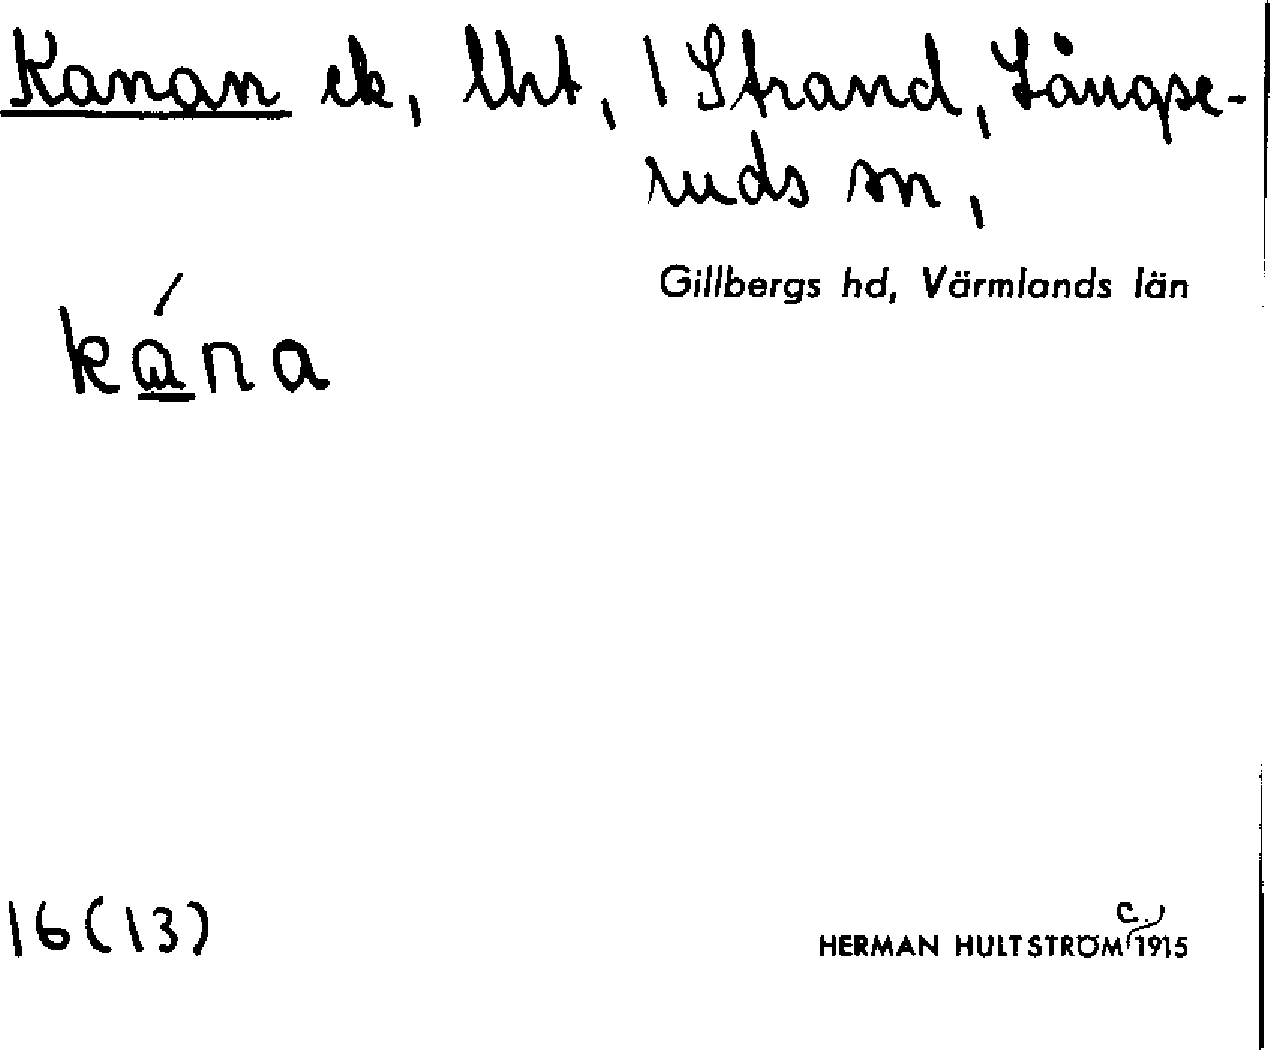 Kanan ek, lht, 1 Strand, Långse-
ruds sn,
Gillbergs hd, Värmlands län
kána
16(13)
c.
HERMAN HULTSTRÖM 1915